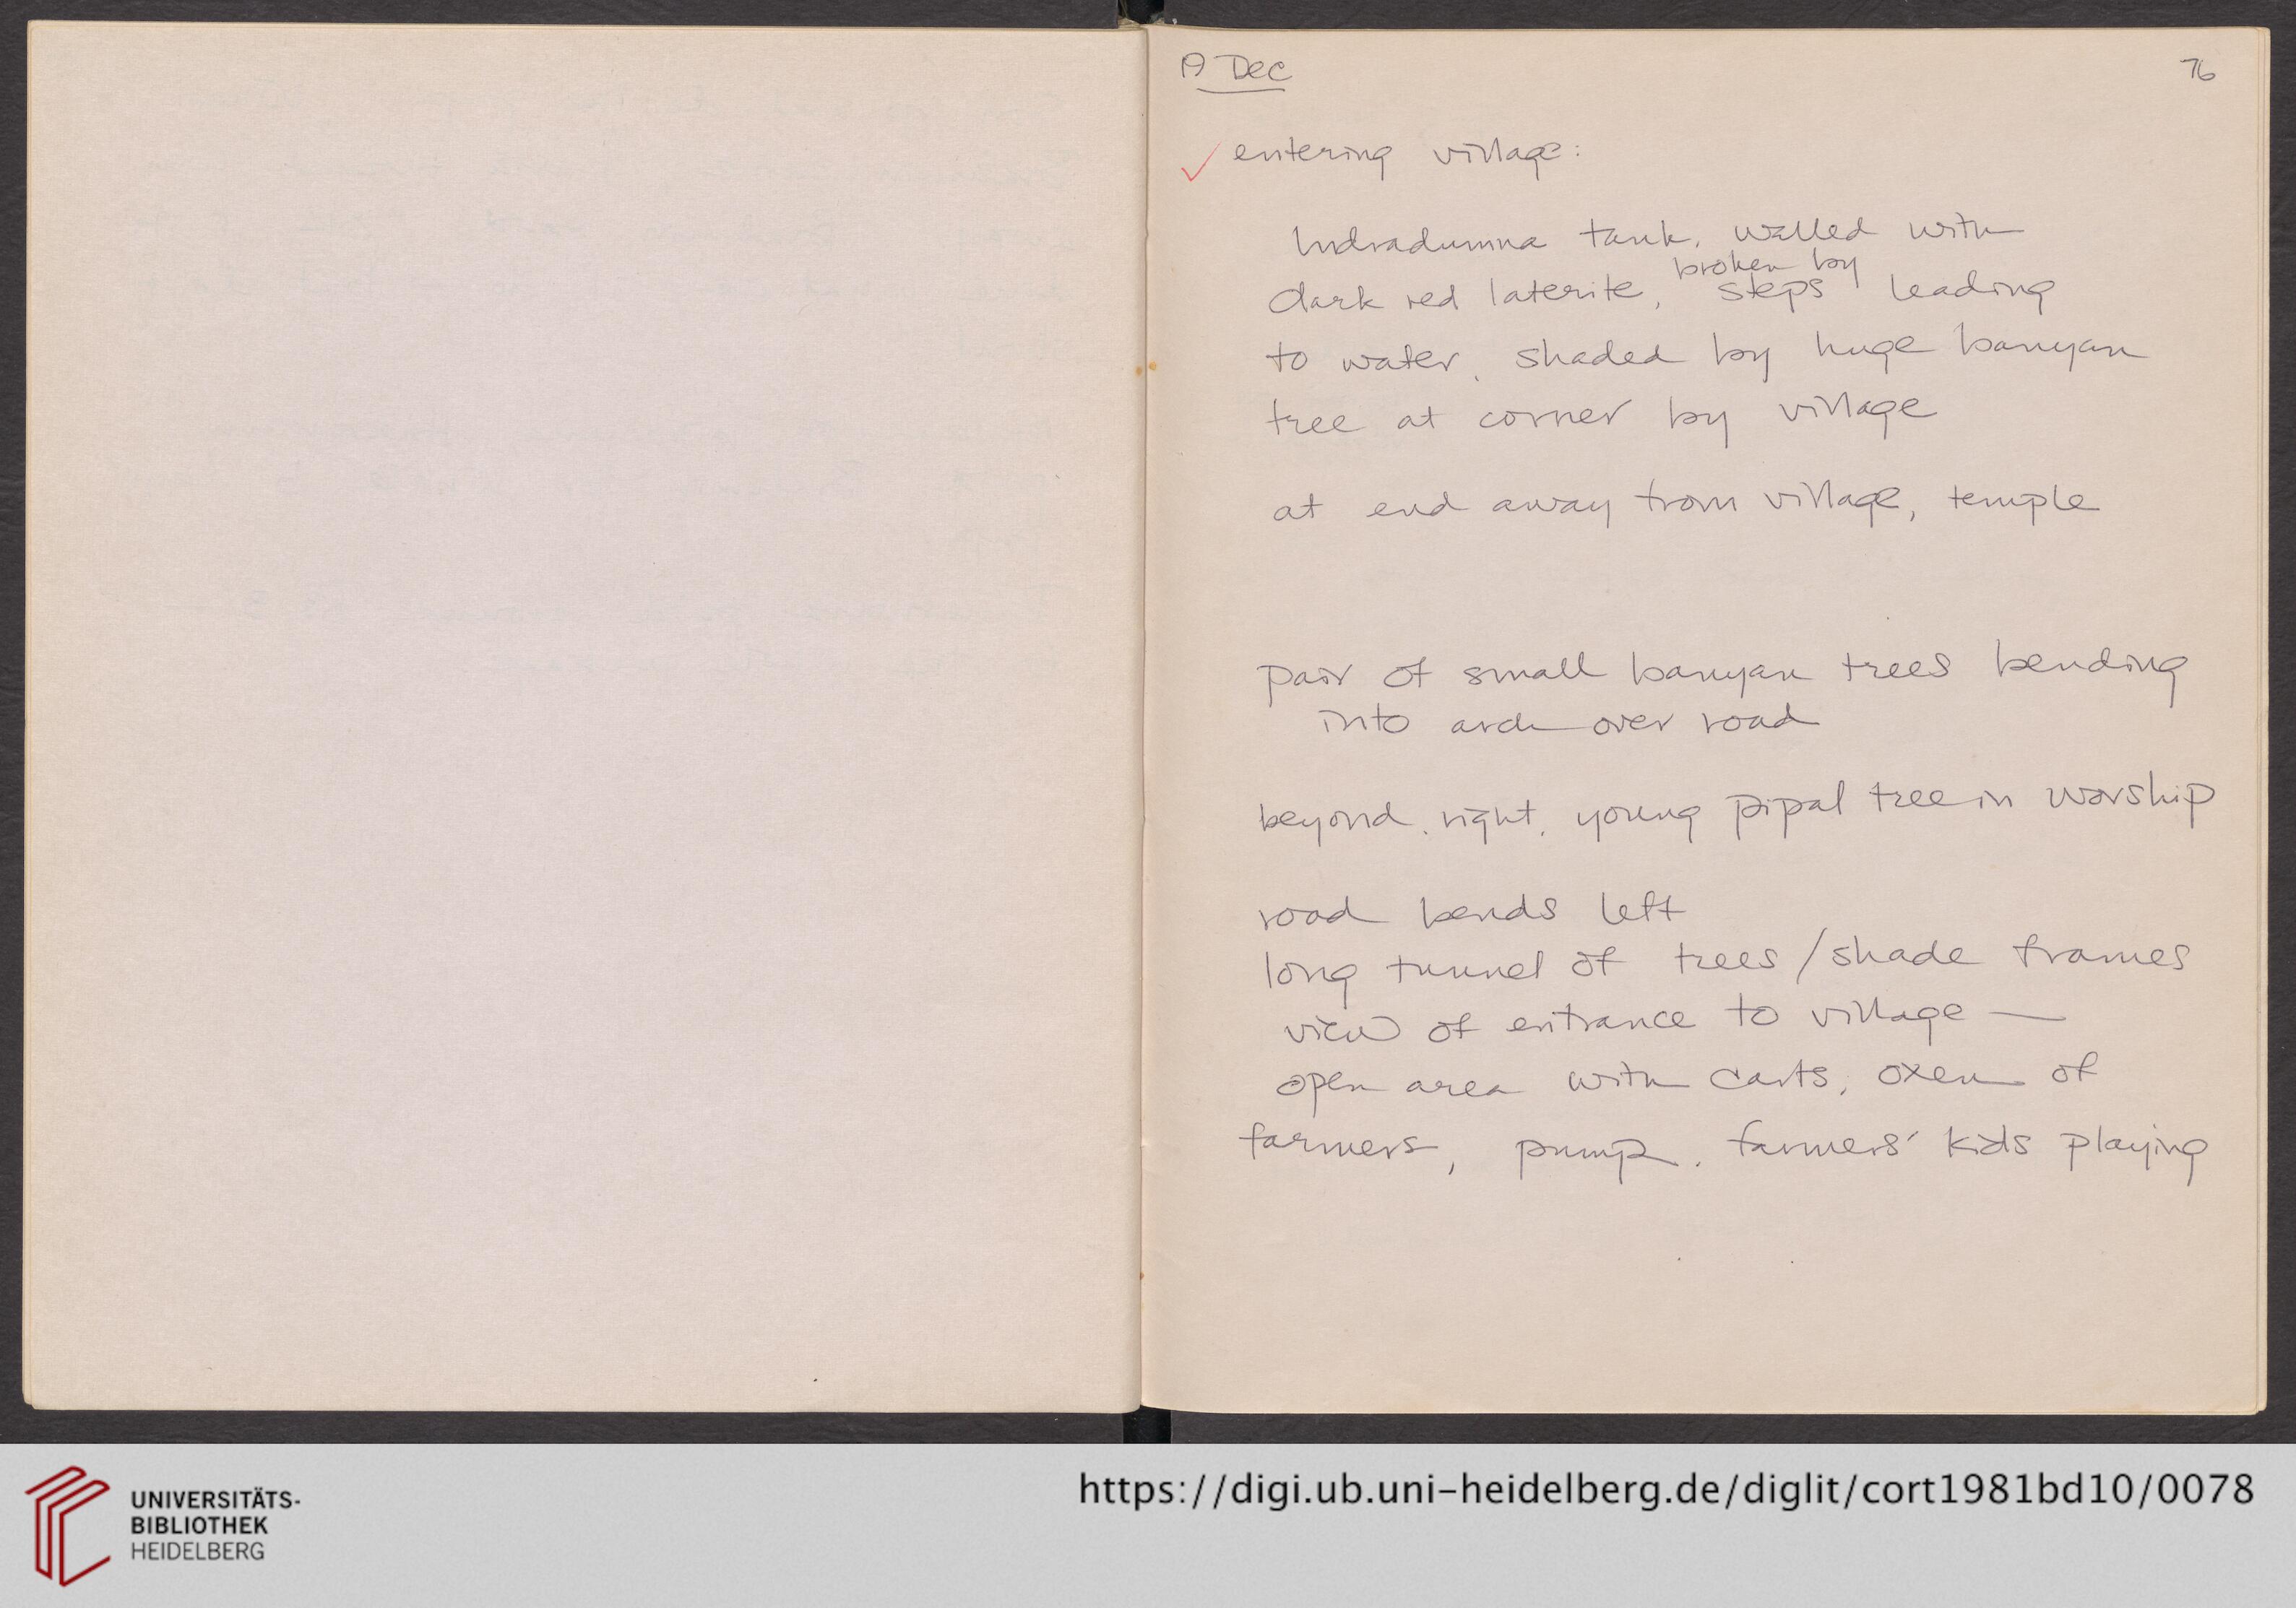 19 Dec
76
✓ entering village:
Indradumna tank, walled with
broken by
dark red laterite, steps leading
to water, shaded by huge banyan
tree at corner by village
at end away from village, temple
pair of small banyan trees bending
into arch over road
beyond, right, young pipal tree in worship
road bends left
long tunnel of trees / shade frames
view of entrance to village —
open area with carts, oxen of
farmers, pump, farmers' kids playing
UNIVERSITÄTS-
BIBLIOTHEK
HEIDELBERG
https://digi.ub.uni-heidelberg.de/diglit/cort1981bd10/0078